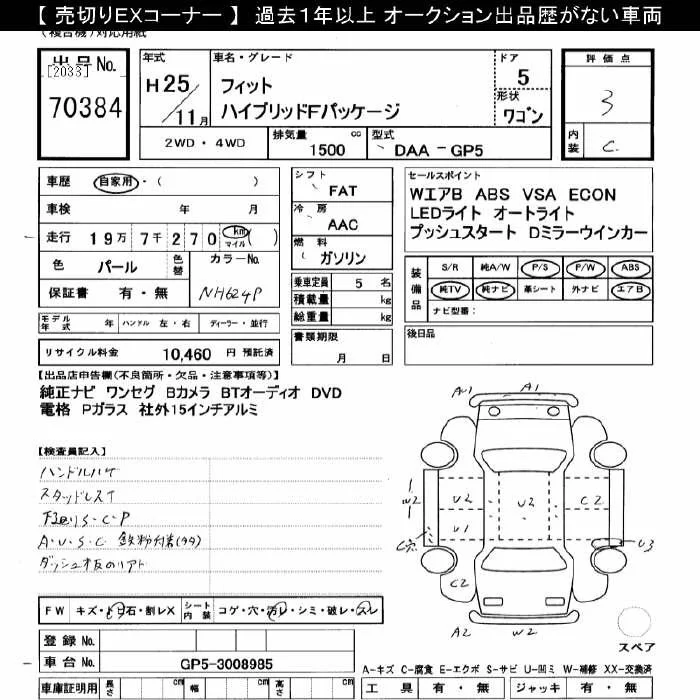 【 売切りEXコーナー 】 過去1年以上 オークション出品歴がない車両
(複合機)対応用紙
出品No.
[2033]
70384
年式 車名・グレード ドア
H25/11月 フィット 5
ハイブリッドFパッケージ 形状 ワゴン
2WD・4WD 排気量 1500 cc 型式 DAA-GP5
評価点
3
内装 C
車歴 自家用・( )
車検 年 月
走行 19万7千270 km マイル ( )
色 パール 色替 カラーNo.
保証書 有・無 NH624P
シフト FAT
冷房 AAC
燃料 ガソリン
乗車定員 5 名
積載量 kg
総重量 kg
セールスポイント
WエアB ABS VSA ECON
LEDライト オートライト
プッシュスタート Dミラーウインカー
装備品 S/R 純A/W P/S P/W ABS
純TV 純ナビ 革シート 外ナビ エアB
ナビ型番:
モデル年式 年 ハンドル 左・右 ディーラー・並行
書類期限
月 日
後日品
リサイクル料金 10,460 円 預託済
【出品店申告欄(不良箇所・欠品・注意事項等)】
純正ナビ ワンセグ Bカメラ BTオーディオ DVD
電格 Pガラス 社外15インチアルミ
【検査員記入】
ハンドルハゲ
スタッドレス
下回りS・C・P
A・U・S・C 鉄粉付着
A1 A1
W2 U2 U2 C2
U1
C穴 U3
C2
A2 W2
スペア
FW キズ・トビ石・割レX シート内装 コゲ・穴・汚レ・シミ・破レ・スレ
登録No.
車台No. GP5-3008985
A-キズ C-腐食 E-エクボ S-サビ U-凹ミ W-補修 XX-交換済
車庫証明用 長さ cm 幅 cm 高さ cm
工具 有・無 ジャッキ 有・無